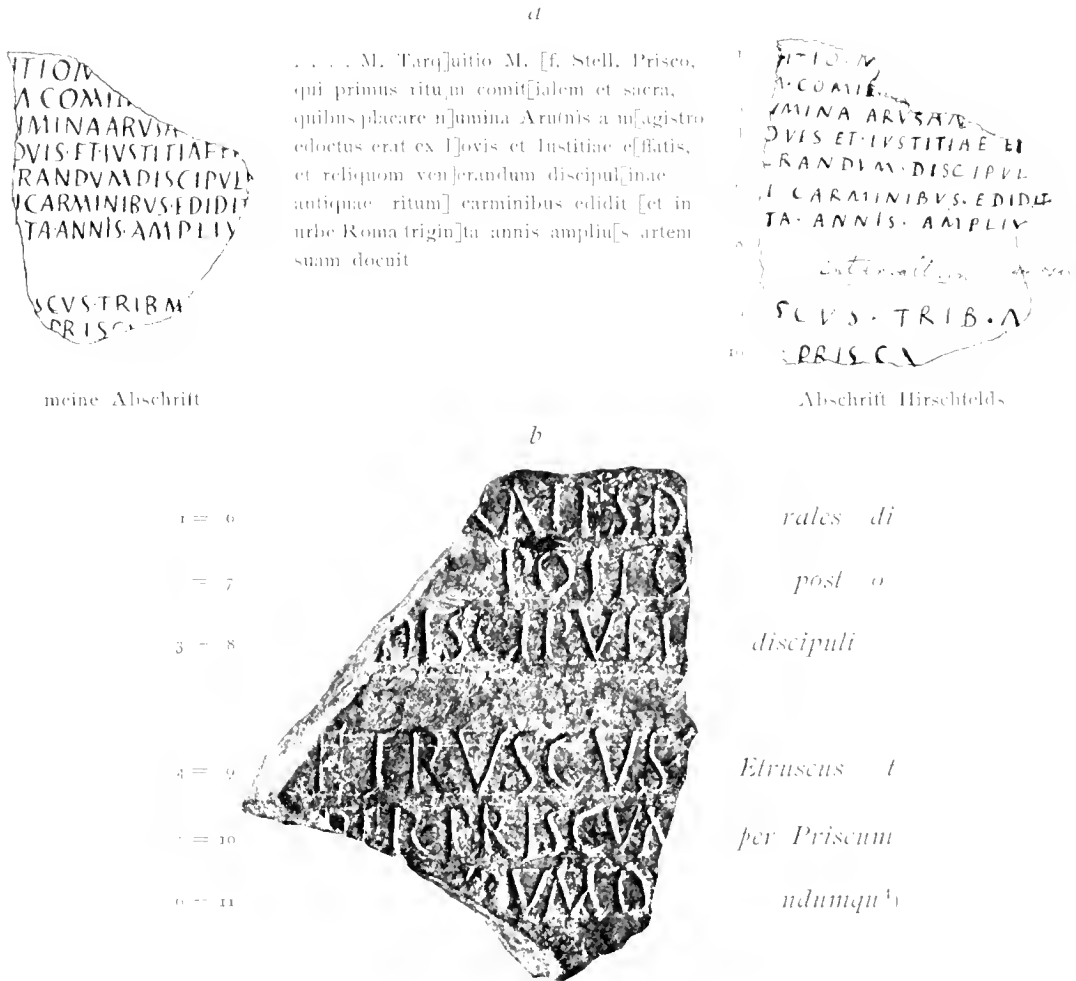 a
ITION
A COMI
IMINA ARVSA
OVIS·ET·IVSTITIAE
RANDVM DISCIPVL
I CARMINIBVS·EDIDIT
TA·ANNIS·AMPLIV
SCVS·TRIB M
PRISC
meine Abschrift
. . . . M. Tarq]uitio M. [f. Stell. Prisco,
qui primus ritu]m comit[ialem et sacra,
quibus placare n]umina Aru[nis a m]agistro
edoctus erat ex I]ovis et Iustitiae e[ffatis,
et reliquom ven]erandum discipul[inae
antiquae ritum] carminibus edidit [et in
urbe Roma trigin]ta annis ampliu[s artem
suam docuit
1
ITIO·N
COMI
IMINA ARVSA
OVIS ET·IVSTITIAE
RANDVM·DISCIPVL
I CARMINIBVS·EDIDIT
TA·ANNIS·AMPLIV
SCVS·TRIB·
10 PRISC
Abschrift Hirschfelds
b
1 = 6 RALES D rales di
= 7 POST O post o
3 = 8 DISCIPVLI discipuli
4 = 9 ETRVSCVS Etruscus t
= 10 PER·PRISCVM per Priscum
6 = 11 NDVMQ ndumqu¹)